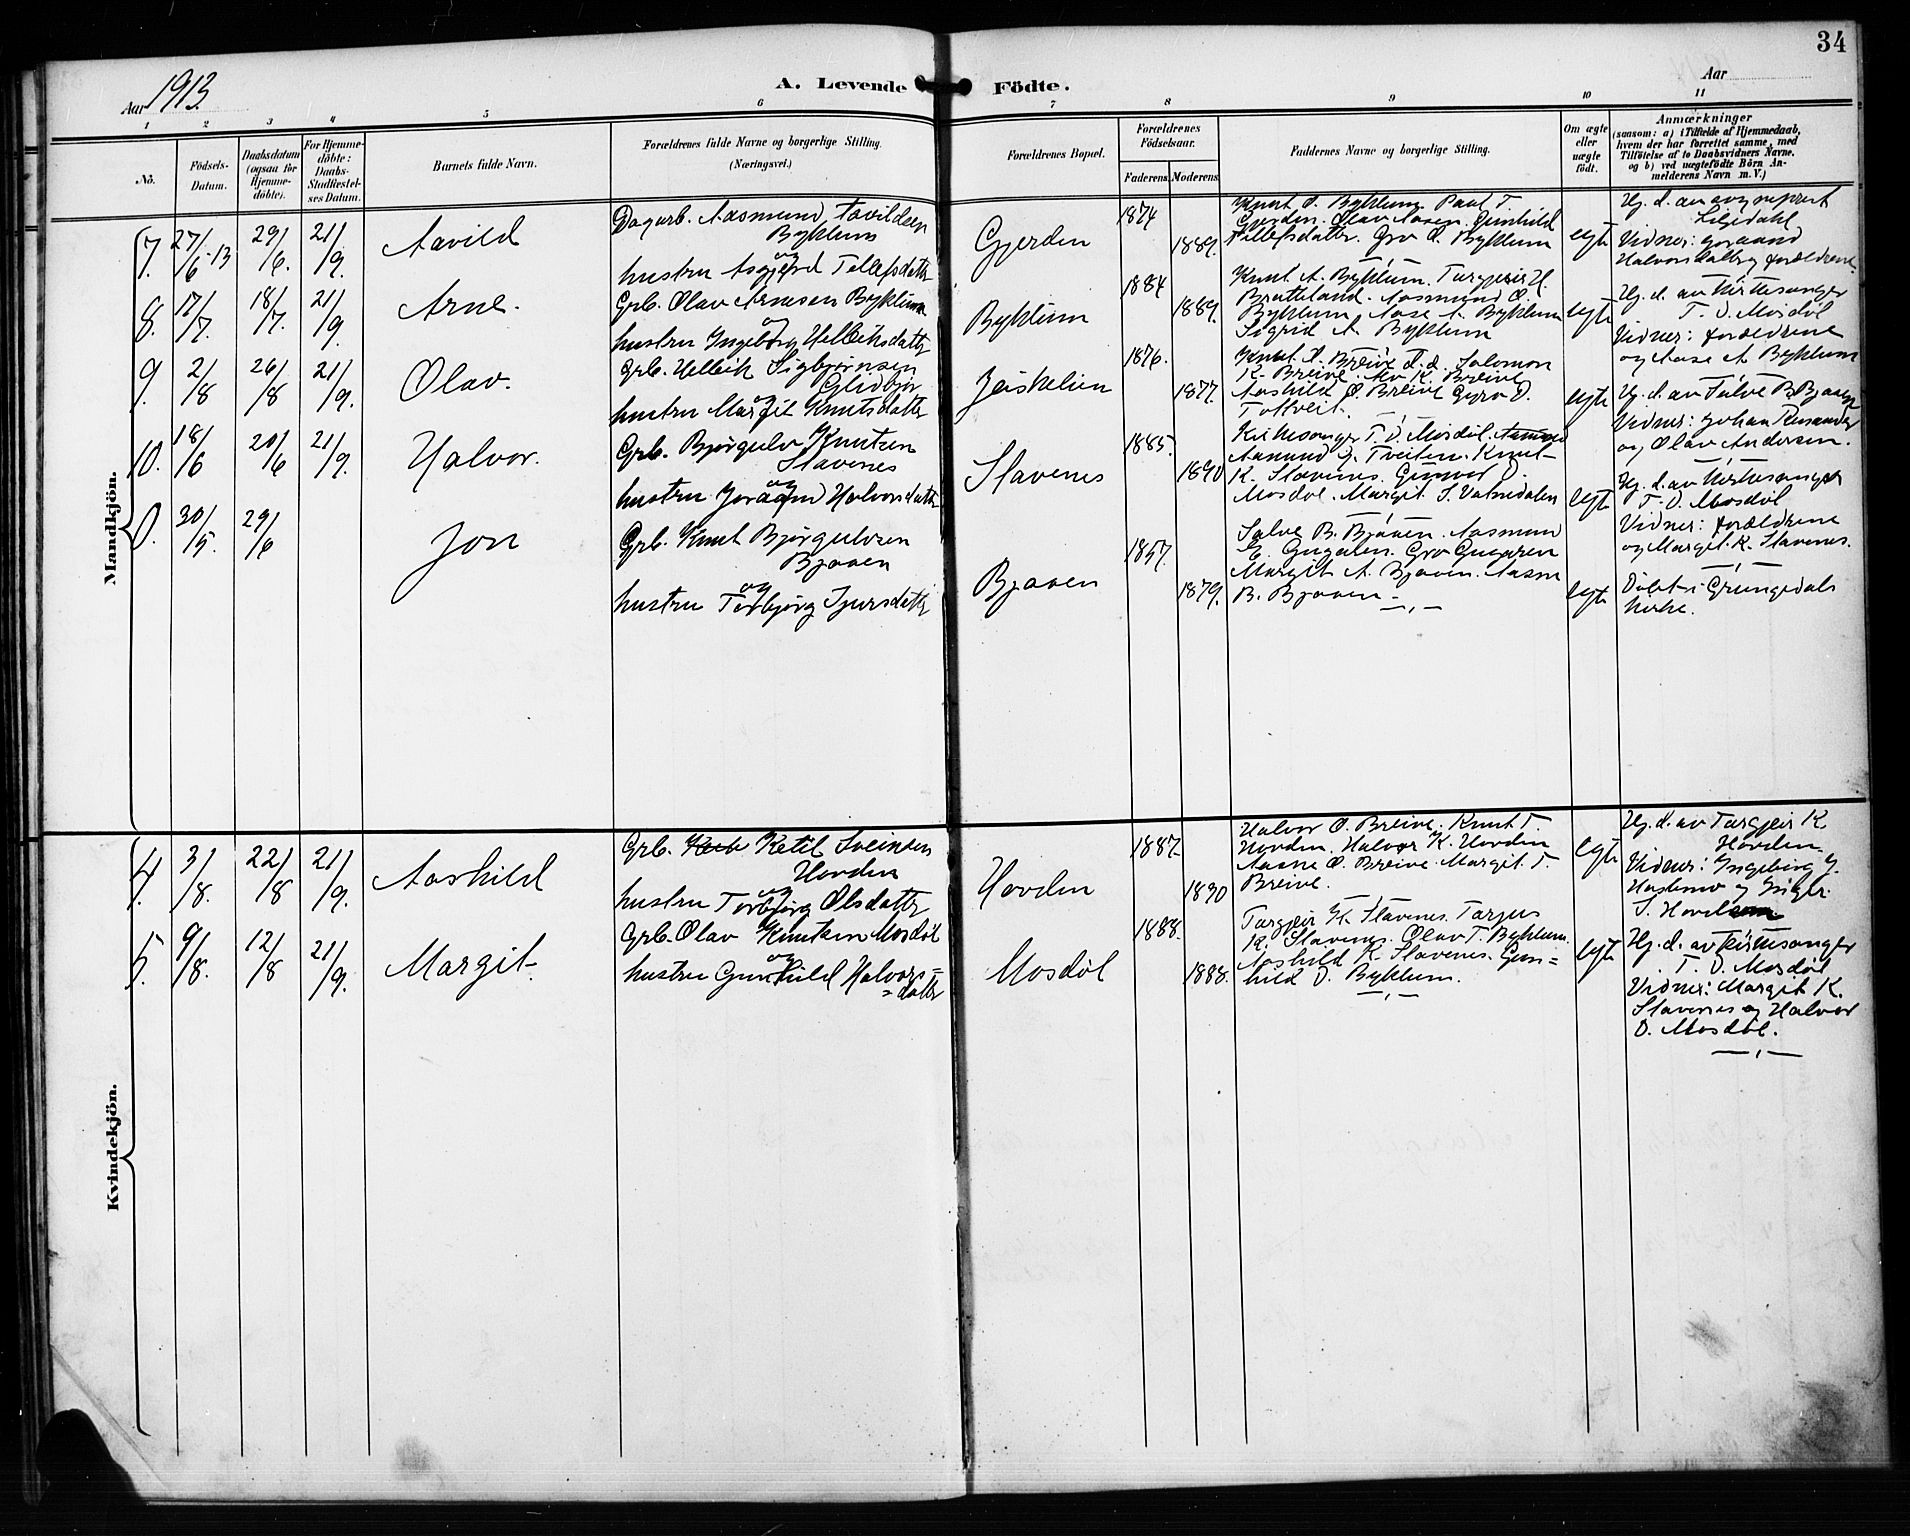 34
Aar 1913.
A. Levende Födte.
Aar
1 2 3 4 5 6 7 8 9 10 11
No.
Födsels-
Datum.
Daabsdatum
(ogsaa for
Hjemme-
döbte).
For Hjemme-
döbte:
Daabs-
Stadfæstel-
ses Datum.
Barnets fulde Navn.
Forældrenes fulde Navne og borgerlige Stilling.
(Næringsvei.)
Forældrenes Bopæl.
Forældrenes
Födselsaar.
Faderens Moderens
Faddernes Navne og borgerlige Stilling.
Om ægte
eller
uægte
født.
Anmærkninger
(saasom: a) i Tilfælde af Hjemmedaab,
hvem der har forrettet samme, med
Tilföielse af to Daabsvidners Navne,
og b) ved uægtefödte Börn An-
melderens Navn m. V.)
Mandkjön.
7. 27/6-13 29/6. 21/9. Aavild
Dagarb. Aasmund Tavildsen
Byklum
og
hustru Asgjerd Tellefsdatter
Gjerden
1874
1889.
Knut O. Byklum. Paul T.
Gjerden. Olav Aasen. Gunhild
Tellefsdatter. Gro O. Byklum
egte
Hj. d. av sogneprest
Liljedahl
Vidner:
forældrene
8. 17/7. 18/7. 21/9. Arne.
Grb. Olav Arnesen Byklum
og
hustru Ingeborg Helleiksdatter
Byklum
1884
1889.
Knut A. Byklum. Targjeir H.
Bratteland. Aasmund O.
Byklum. Aase A. Byklum
Sigrid A. Byklum
egte
Hj. d. av Kirkesanger
T. D. Mosdöl
Vidner: forældrene
og Aase A. Byklum
9. 2/8 26/8 21/9. Olav.
Grb. Helleik Sigbjørnsen
Glidbjør
og
hustru Margit Knutsdatter
Jeiskelien
1876.
1877.
Knut D. Breive. D. d. Salomon
K. Breive. K. Breive
Aashild O. Breive Gyro D.
Toftveit.
egte
Hj. d. av Salve B. Bjaaen
Vidner: Johan
og Olav Andersen.
10. 18/6 20/6 21/9. Halvor.
Grb. Bjørgulv Knutsen
Stavenes
og
hustru Joraand Halvorsdatter
Stavenes
1885.
1890
Kirkesanger T. D. Mosdöl.
Aanund G. Tveiten. Knut
K. Stavenes. Gunvor D.
Mosdöl. Margit S. Vatnedalen
egte
Hj. d. av Kirkesanger
T. D. Mosdöl
Vidner: forældrene
og Margit K. Stavenes.
0. 30/5. 29/6 Jon
Grb. Knut Bjørgulvsen
Bjaaen
og
hustru Torbjørg Sjursdatter
Bjaaen
1857.
1879.
Salve B. Bjaaen. Aasmund
G. Gugaren. Gro Gugaren
Margit A. Bjaaen. Aasne
B. Bjaaen
egte
Døbt i Grungedals
kirke.
Kvindekjön.
4. 3/8. 22/8 21/9. Aashild
Grb. Ketil Sveinsen
Hovden
og
hustru Torbjørg Olsdatter
Hovden
1887.
1890
Halvor O. Breive. Knut T.
Hovden. Halvor K. Hovden
Aasne O. Breive. Margit T.
Breive.
egte
Hj. d. av Targjeir K.
Hovden.
Vidner: Ingebjørg G.
Haslemo og Inger
S. Hovden
5. 9/8. 12/8 21/9. Margit
Grb. Olav Knutsen Mosdöl
og
hustru Gunhild Halvors=
=datter
Mosdöl
1888.
1888.
Targjeir K. Stavenes. Targus
K. Stavenes. Olav T. Byklum.
Aashild K. Stavenes. Gun=
hild D. Byklum.
egte
Hj. d. av kirkesanger
T. D. Mosdöl
Vidner: Margit K.
Stavenes og Halvor
O. Mosdöl.